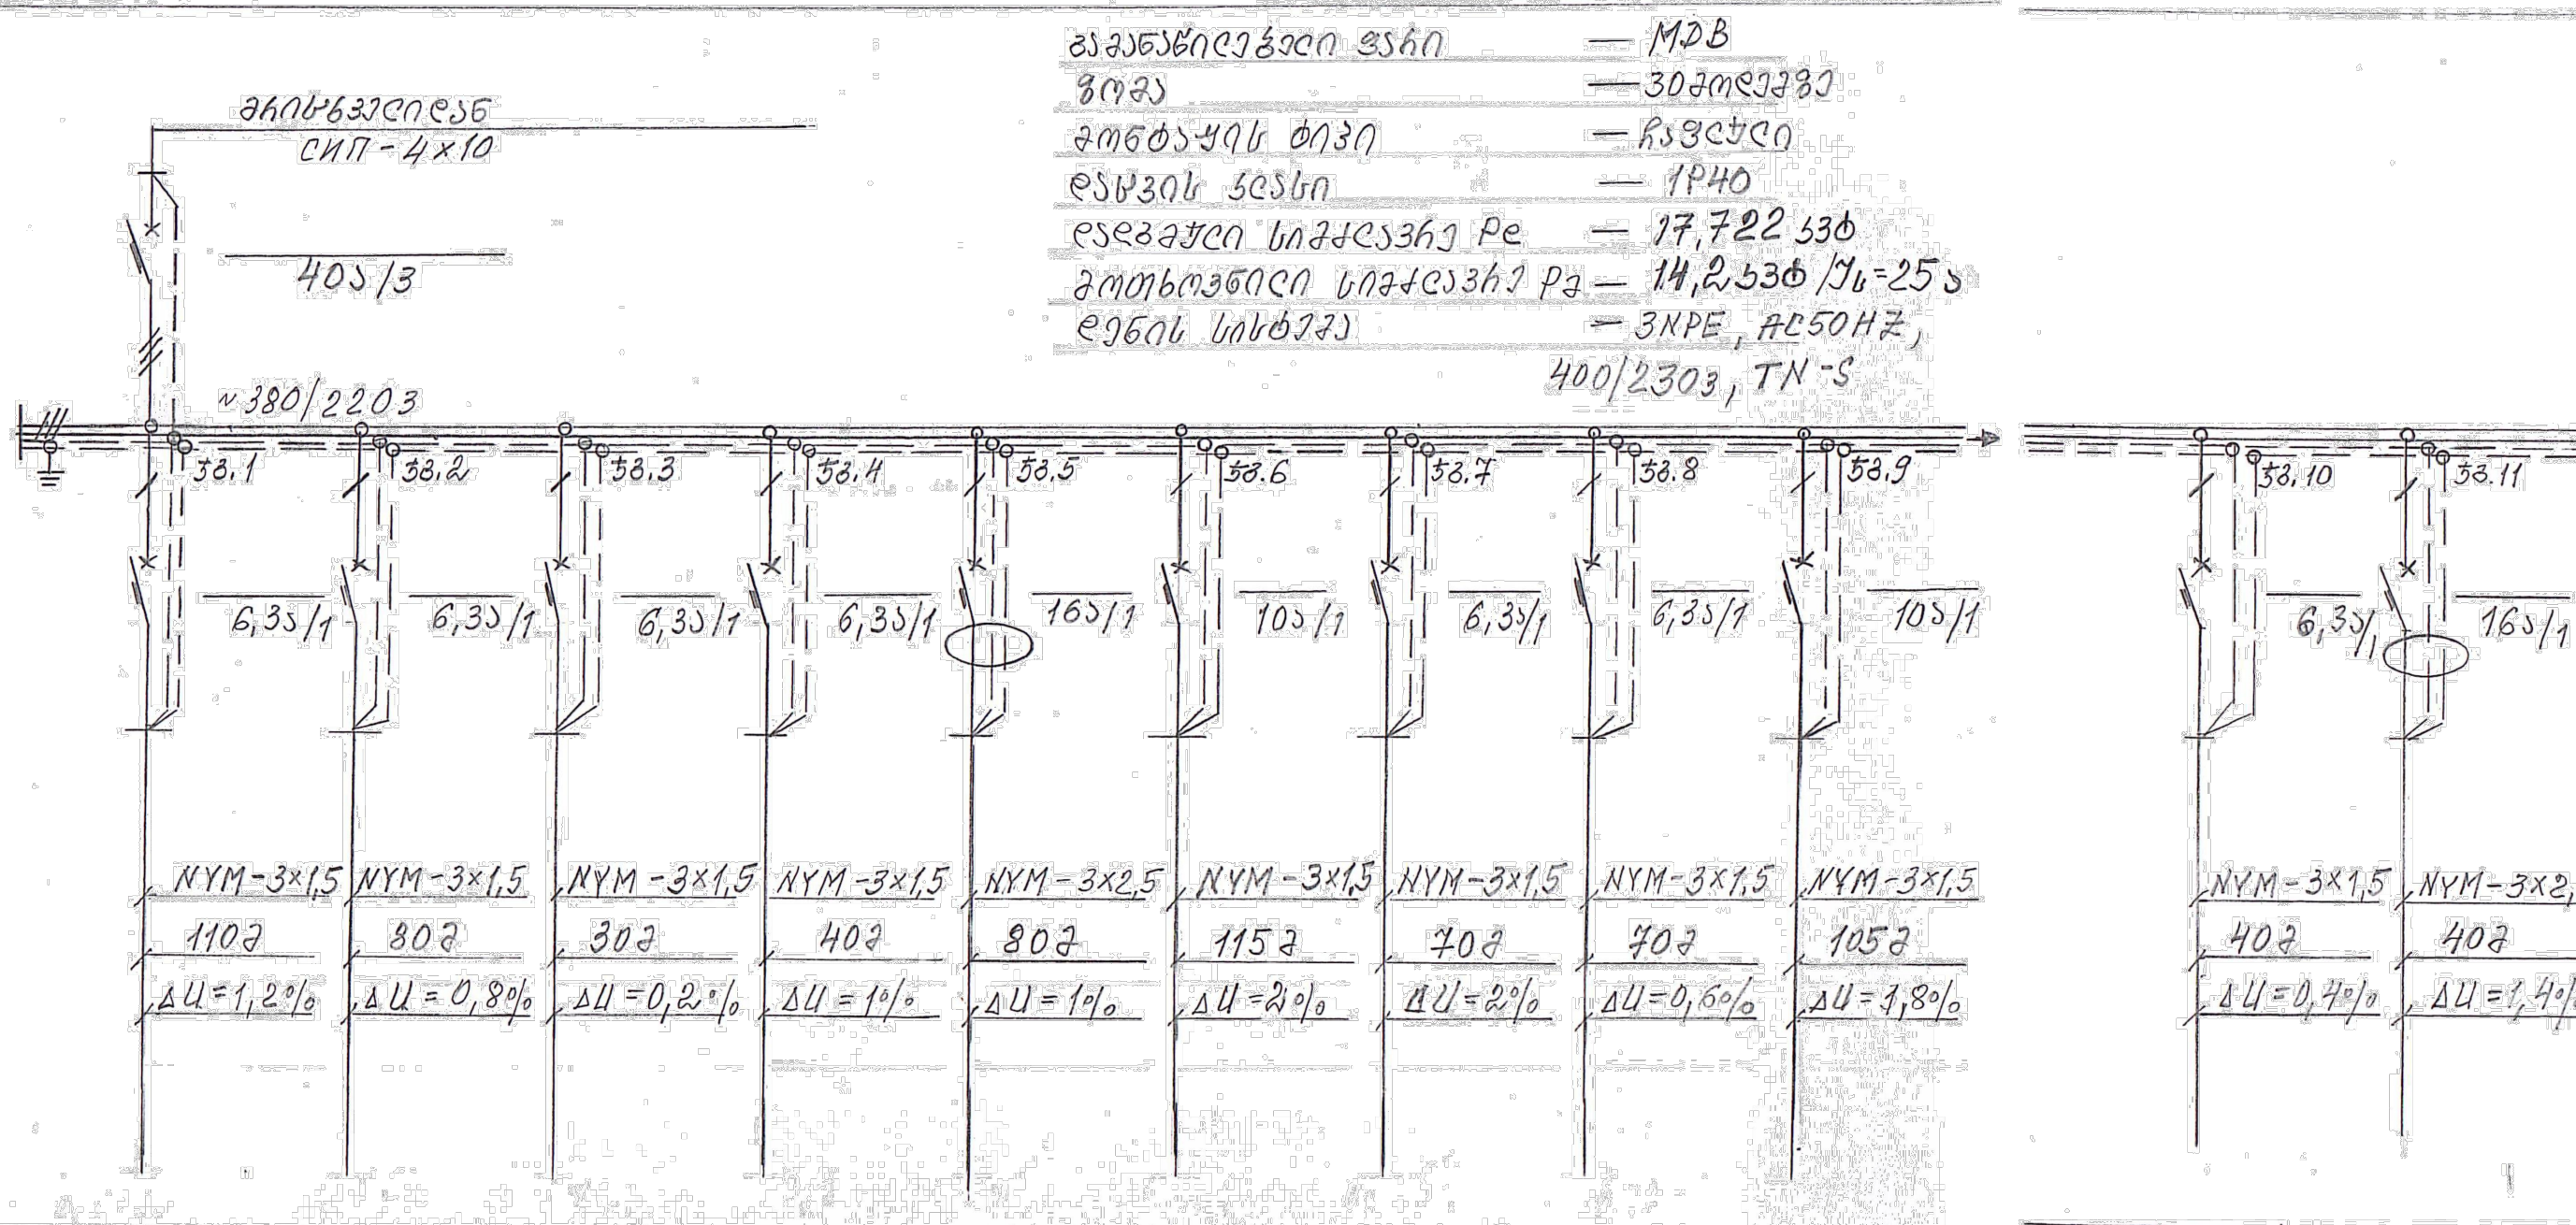 გამანაწილებელი ფარი — MDB
ზომა — 30 მოდემზე
მონტაჟის ტიპი — ჩაფლული
დაცვის კლასი — IP40
დადგმული სიმძლავრე Pe — 17,722 კვტ
მოთხოვნილი სიმძლავრე Pმ — 14,2 კვტ /Iს=25 ა
დენის სისტემა — 3NPE, AC50HZ,
400/230ვ, TN-S
მრიცხველიდან
СИП-4×10
40ა/3
~380/220ვ
ჯგ.1 ჯგ.2 ჯგ.3 ჯგ.4 ჯგ.5 ჯგ.6 ჯგ.7 ჯგ.8 ჯგ.9 ჯგ.10 ჯგ.11
6,3ა/1 6,3ა/1 6,3ა/1 6,3ა/1 16ა/1 10ა/1 6,3ა/1 6,3ა/1 10ა/1 6,3ა/1 16ა/1
NYM-3×1,5 NYM-3×1,5 NYM-3×1,5 NYM-3×1,5 NYM-3×2,5 NYM-3×1,5 NYM-3×1,5 NYM-3×1,5 NYM-3×1,5 NYM-3×1,5 NYM-3×2,
110მ 80მ 30მ 40მ 80მ 115მ 70მ 70მ 105მ 40მ 40მ
ΔU=1,2% ΔU=0,8% ΔU=0,2% ΔU=1% ΔU=1% ΔU=2% ΔU=2% ΔU=0,6% ΔU=1,8% ΔU=0,4% ΔU=1,4%